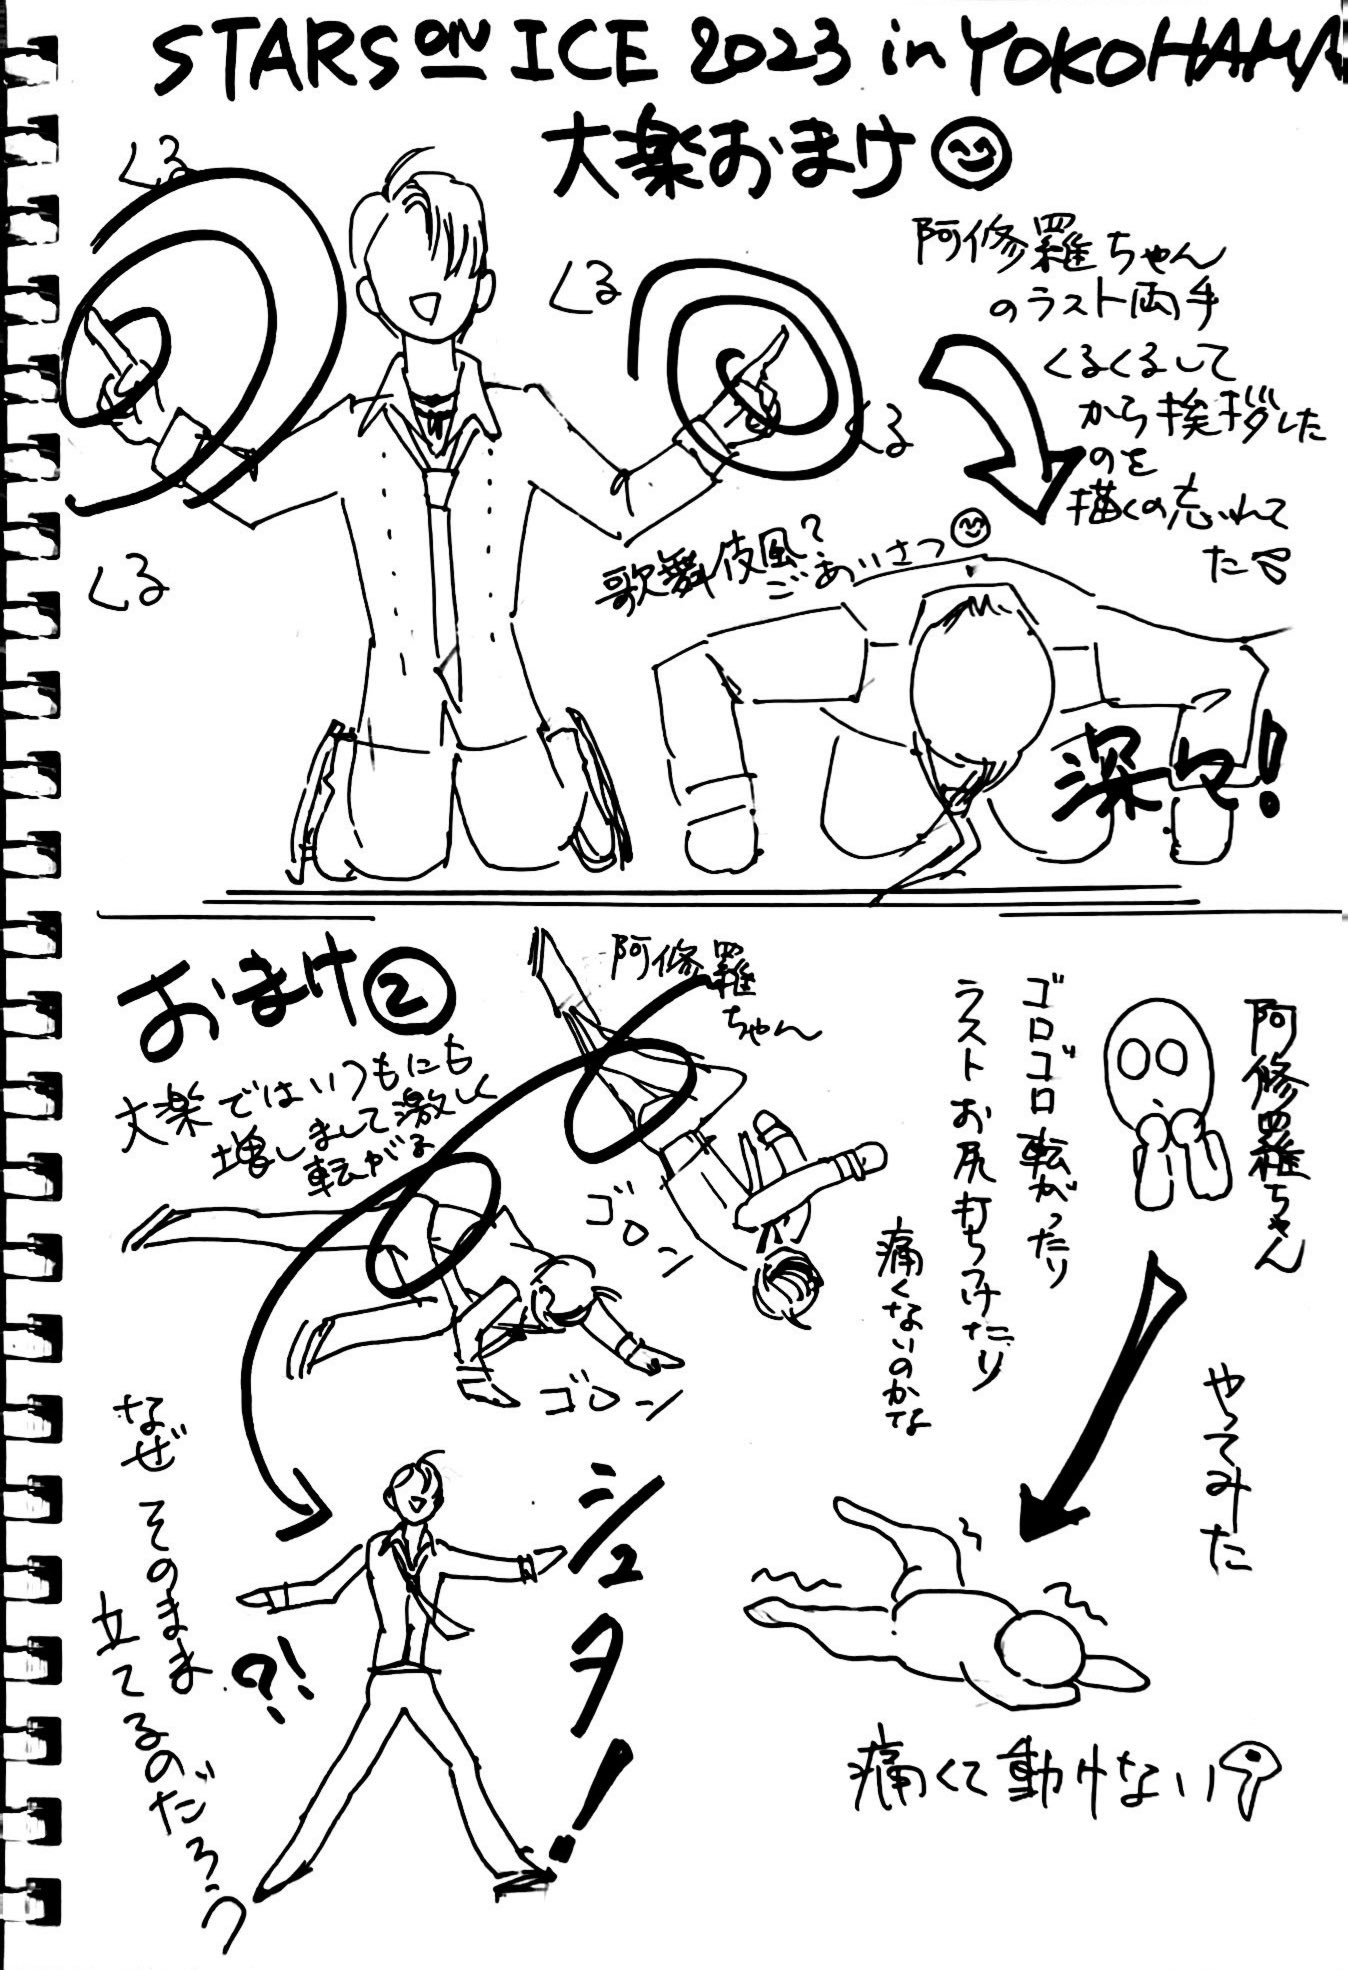 STARS ON ICE 2023 in YOKOHAMA
大楽おまけ
阿修羅ちゃん
のラスト両手
くるくるして
から挨拶した
のを
描くの忘れて
た
くる
くる
くる
くる
歌舞伎風?
ごあいさつ
深々!
おまけ②
大楽ではいつもにも
増しまして激しく
転がる
阿修羅
ちゃん
ゴロン
ゴローン
シュタ!
なぜそのまま
立てるのだろう
?!
阿修羅ちゃん
ゴロゴロ転がったり
ラストお尻打ちつけたり
痛くないのかな
やってみた
痛くて動けない